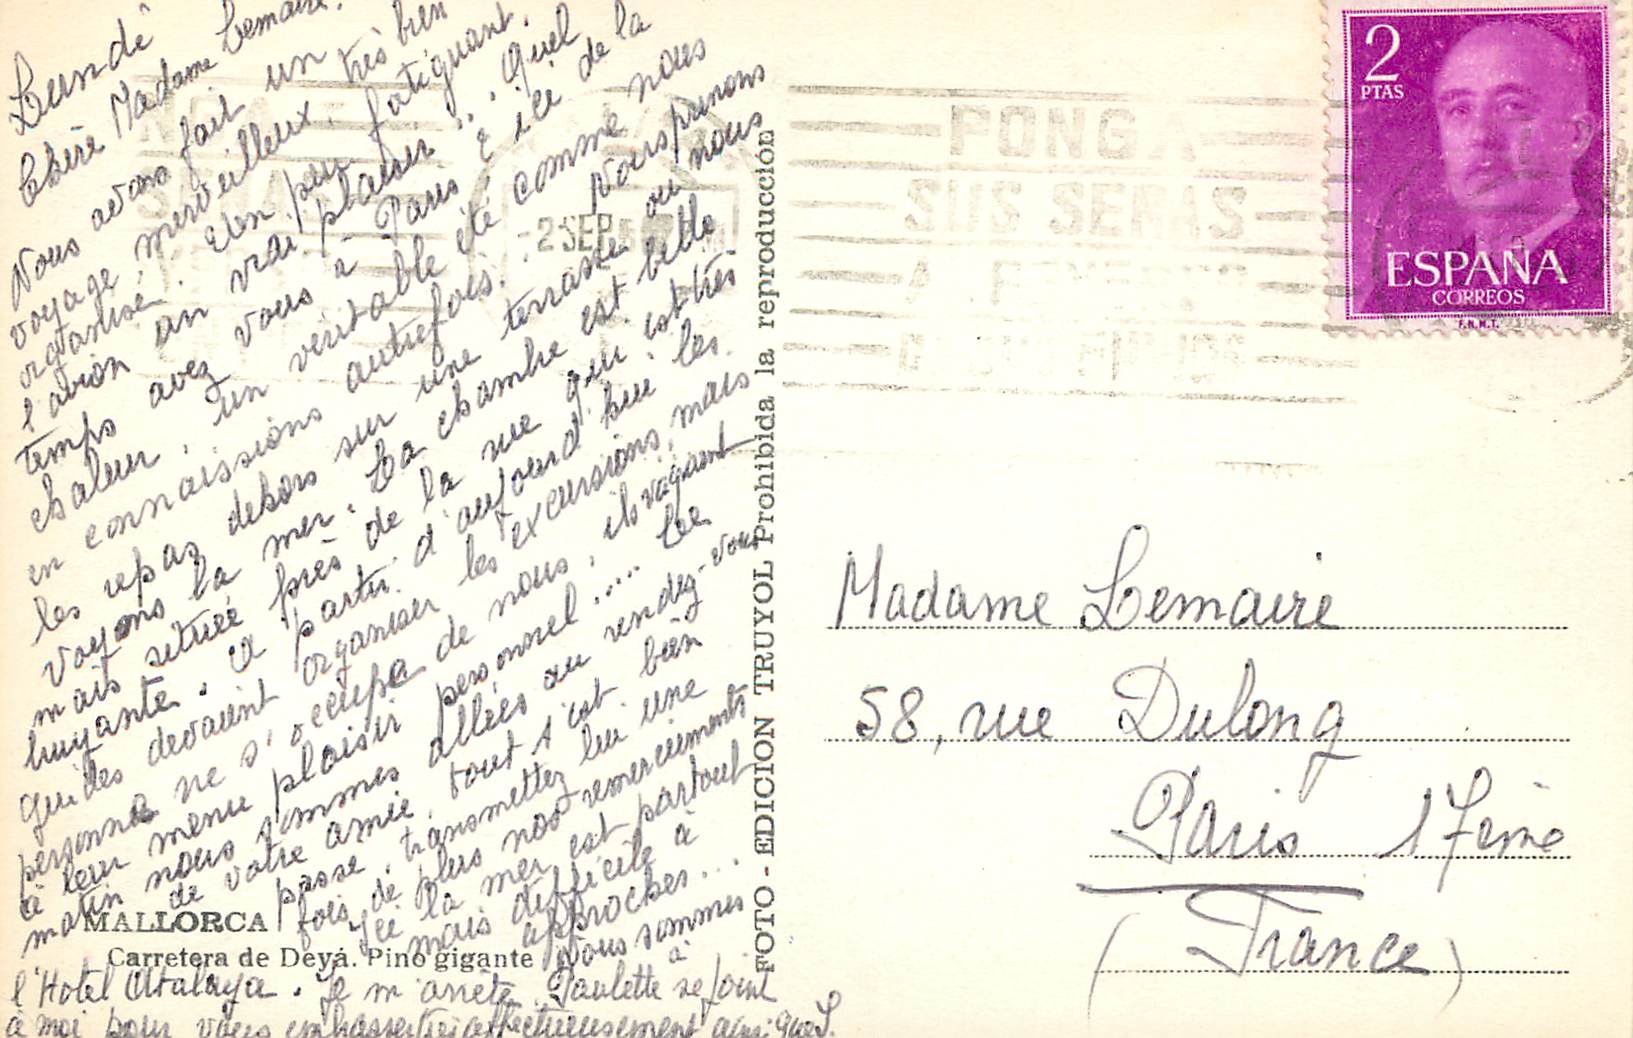 Lundi
Chère Madame Lemaire.
Nous avons fait un
voyage merveilleux, très bien
organisé. Un peu fatiguant.
l'avion un vrai plaisir. Quel
temps avez vous à Paris ? ici de la
chaleur, un véritable été comme nous
en connaissions autrefois. Nous prenons
les repas dehors sur une terrasse ou nous
voyons la mer. La chambre est belle
mais située près de la rue qui est très
bruyante. A partir d'aujourd'hui les
guides devaient organiser les excursions, mais
personne ne s'occupe de nous, ils vaquent
à leur menu plaisir personnel .... Ce
matin nous sommes allées au rendez-vous
de votre amie, tout s'est bien
passé, transmettez lui une
fois de plus nos remerciements
Ici la mer est partout
mais difficile à
approcher...
Nous sommes à
l'Hotel Atalaya. Je m'arrête. Paulette se joint
à moi pour vous embrasser très affectueusement ainsi que S.
MALLORCA
Carretera de Deyá. Pino gigante
FOTO - EDICION TRUYOL Prohibida la reproducción
2 SEP
PONGA
SUS SEÑAS
2
PTAS
ESPAÑA
CORREOS
F.N.M.T.
Madame Lemaire
58, rue Dulong
Paris 17ème
(France)